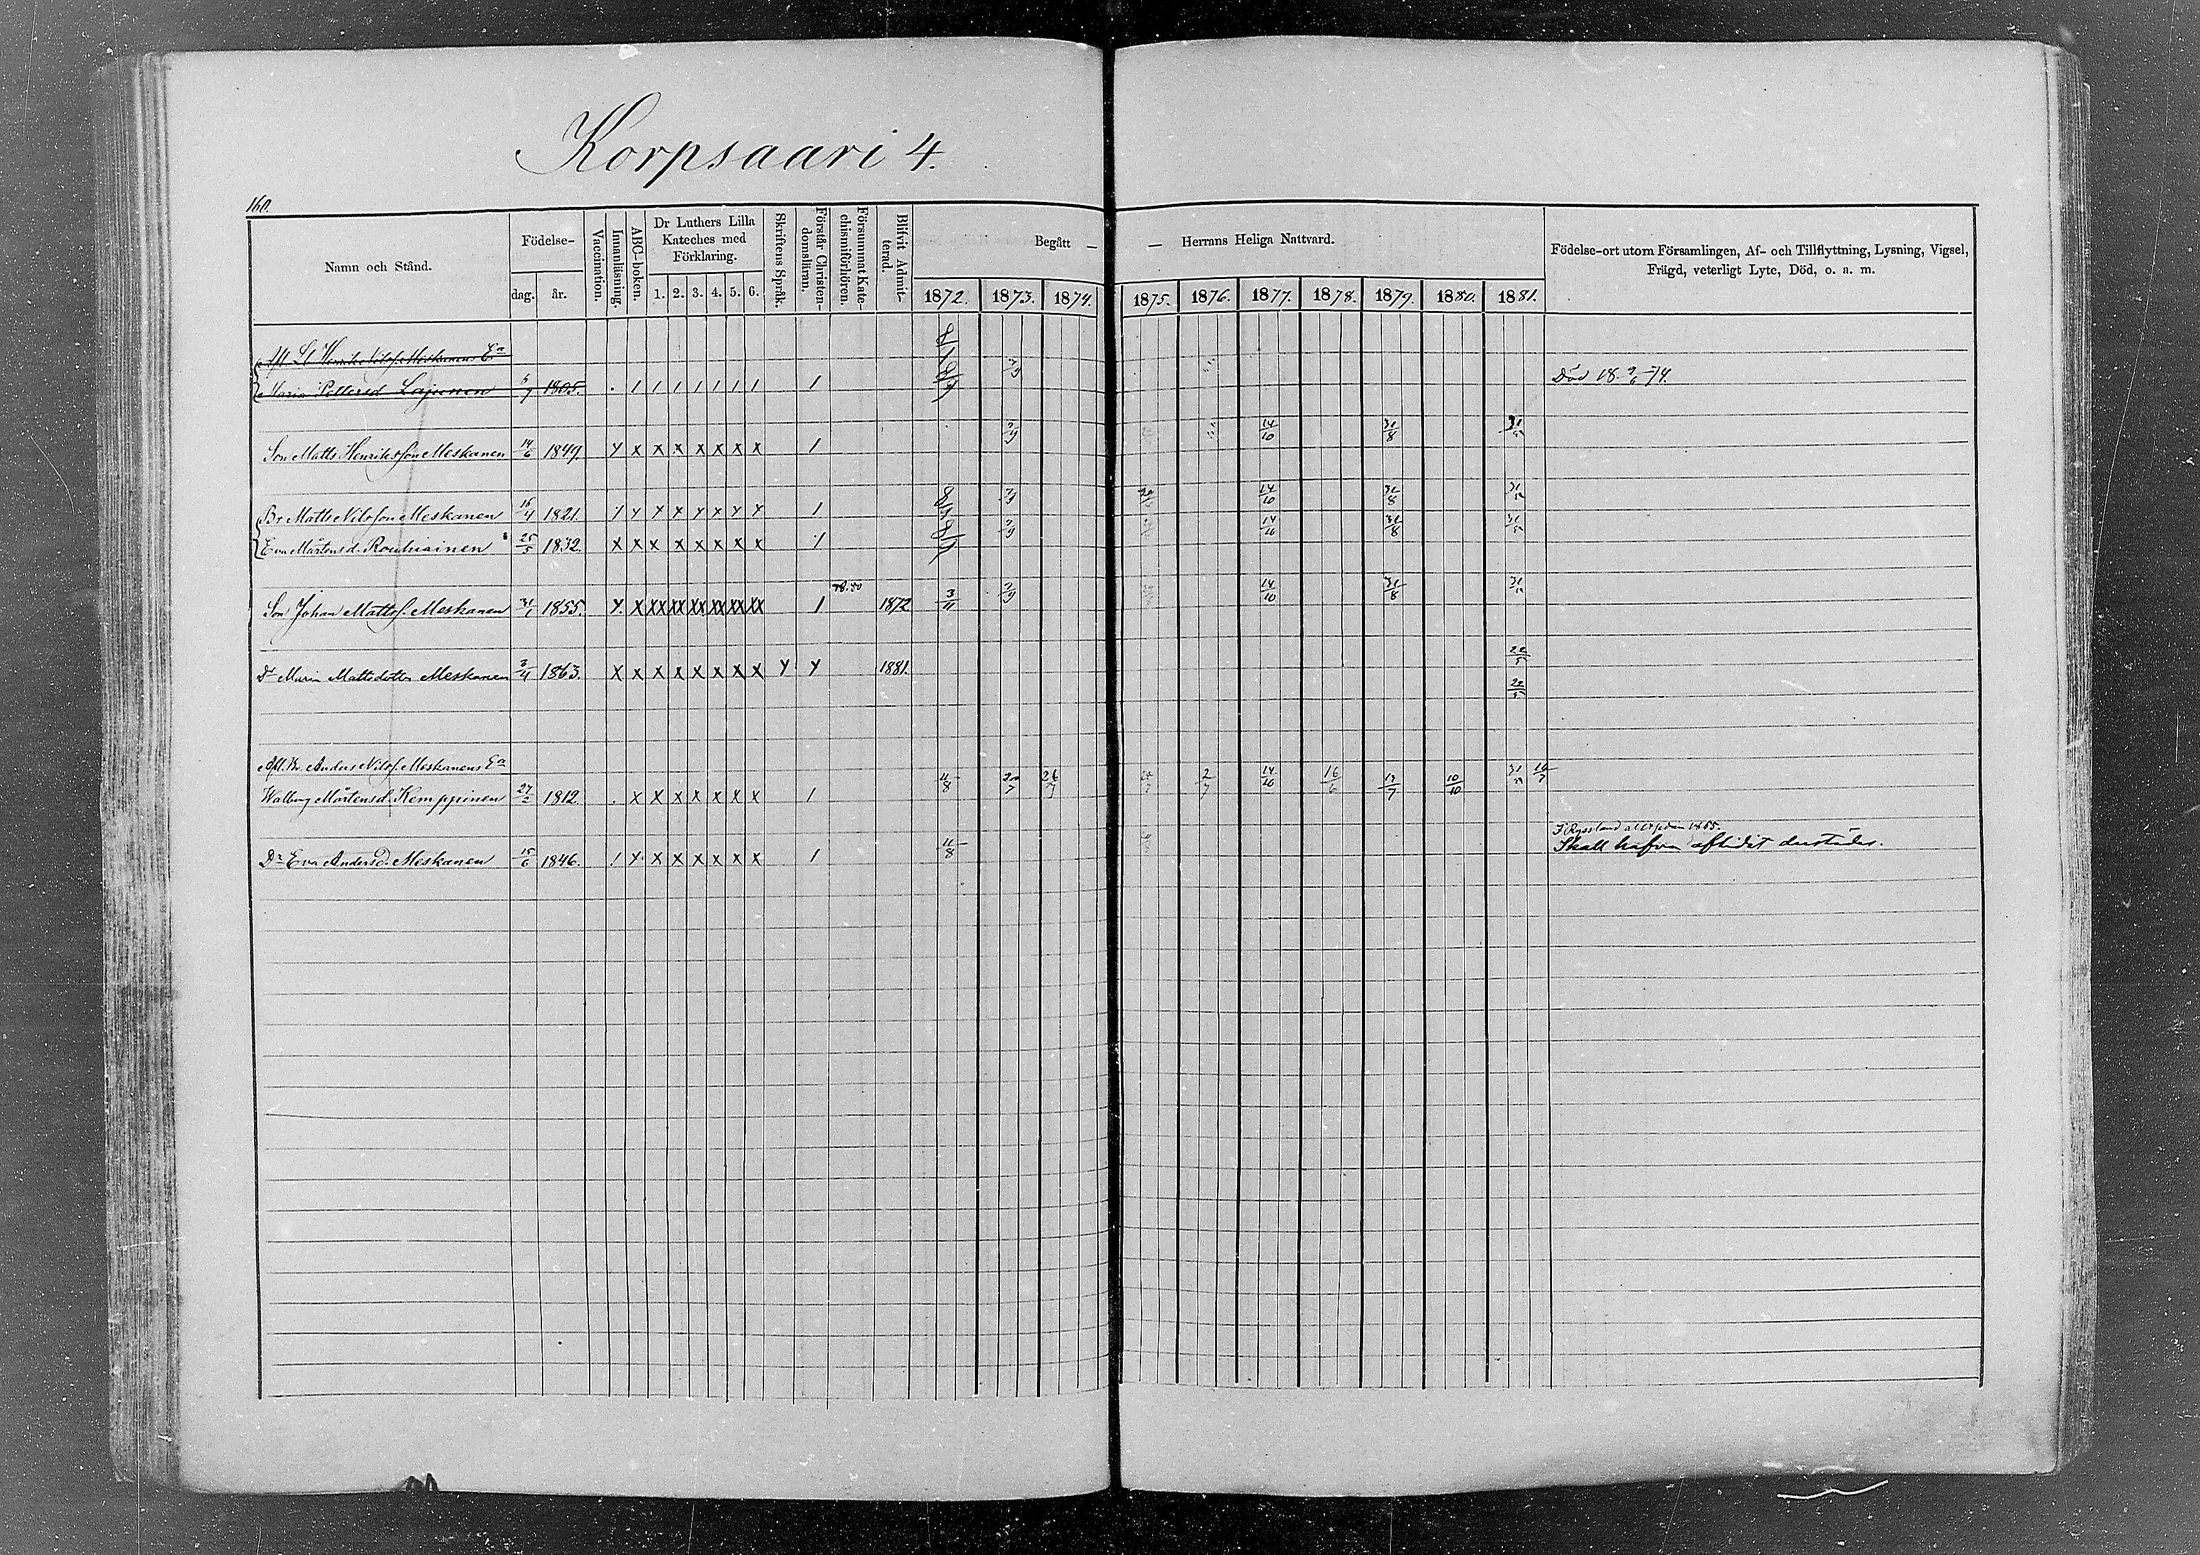 Korpsaari 4.
160.
Namn och Stånd.
Födelse-
dag. år.
Vaccination.
Innanläsning.
ABC-boken.
Dr Luthers Lilla
Kateches med
Förklaring.
1. 2. 3. 4. 5. 6.
Skriftens Språk.
Förstår Christen-
domsläran.
Försummat Kate-
chismiförhören.
Blifvit Admit-
terad.
Begått — — Herrans Heliga Nattvard.
1872. 1873. 1874. 1875. 1876. 1877. 1878. 1879. 1880. 1881.
Födelse-ort utom Församlingen, Af- och Tillflyttning, Lysning, Vigsel,
Frägd, veterligt Lyte, Död, o. a. m.
Henrik Nilsf. Meskanens Ea
Maria Pettersd Lajunen 1805. 1 1 1 1 1 1 1 1 Död 18 9/6 74.
Son Matts Henriksson Meskanen 14/6 1849. Y X X X X X X X 1 14/10 31/8
Br Matts Nilsson Meskanen 16/4 1821. Y Y Y X Y X Y Y 1 14/10 31/8
Eva Mårtensd. Rouhiainen 25/5 1832. X X X X X X X X 1 14/10 31/8
78.80
Son Johan Mattsf. Meskanen 31/1 1855. Y X XX XX XX XX XX XX 1 1872 3/11 14/10 31/8
Dr Maria Mattsdotter Meskanen 3/4 1863. X X X X X X X X Y Y 1881. 22/5
22/5
Afl. Br. Anders Nilsf. Meskanens Ea
Walborg Mårtensd. Kemppinen 27/2 1812. X X X X X X X 1 11/8 20/7 26/7 2/7 14/10 16/6 13/7 10/10 16/7
I Ryssland allt sedan 1865.
Dr Eva Andersd. Meskanen 15/6 1846. 1 Y X X X X X X 1 11/8 Skall hafva aflidit derstädes.